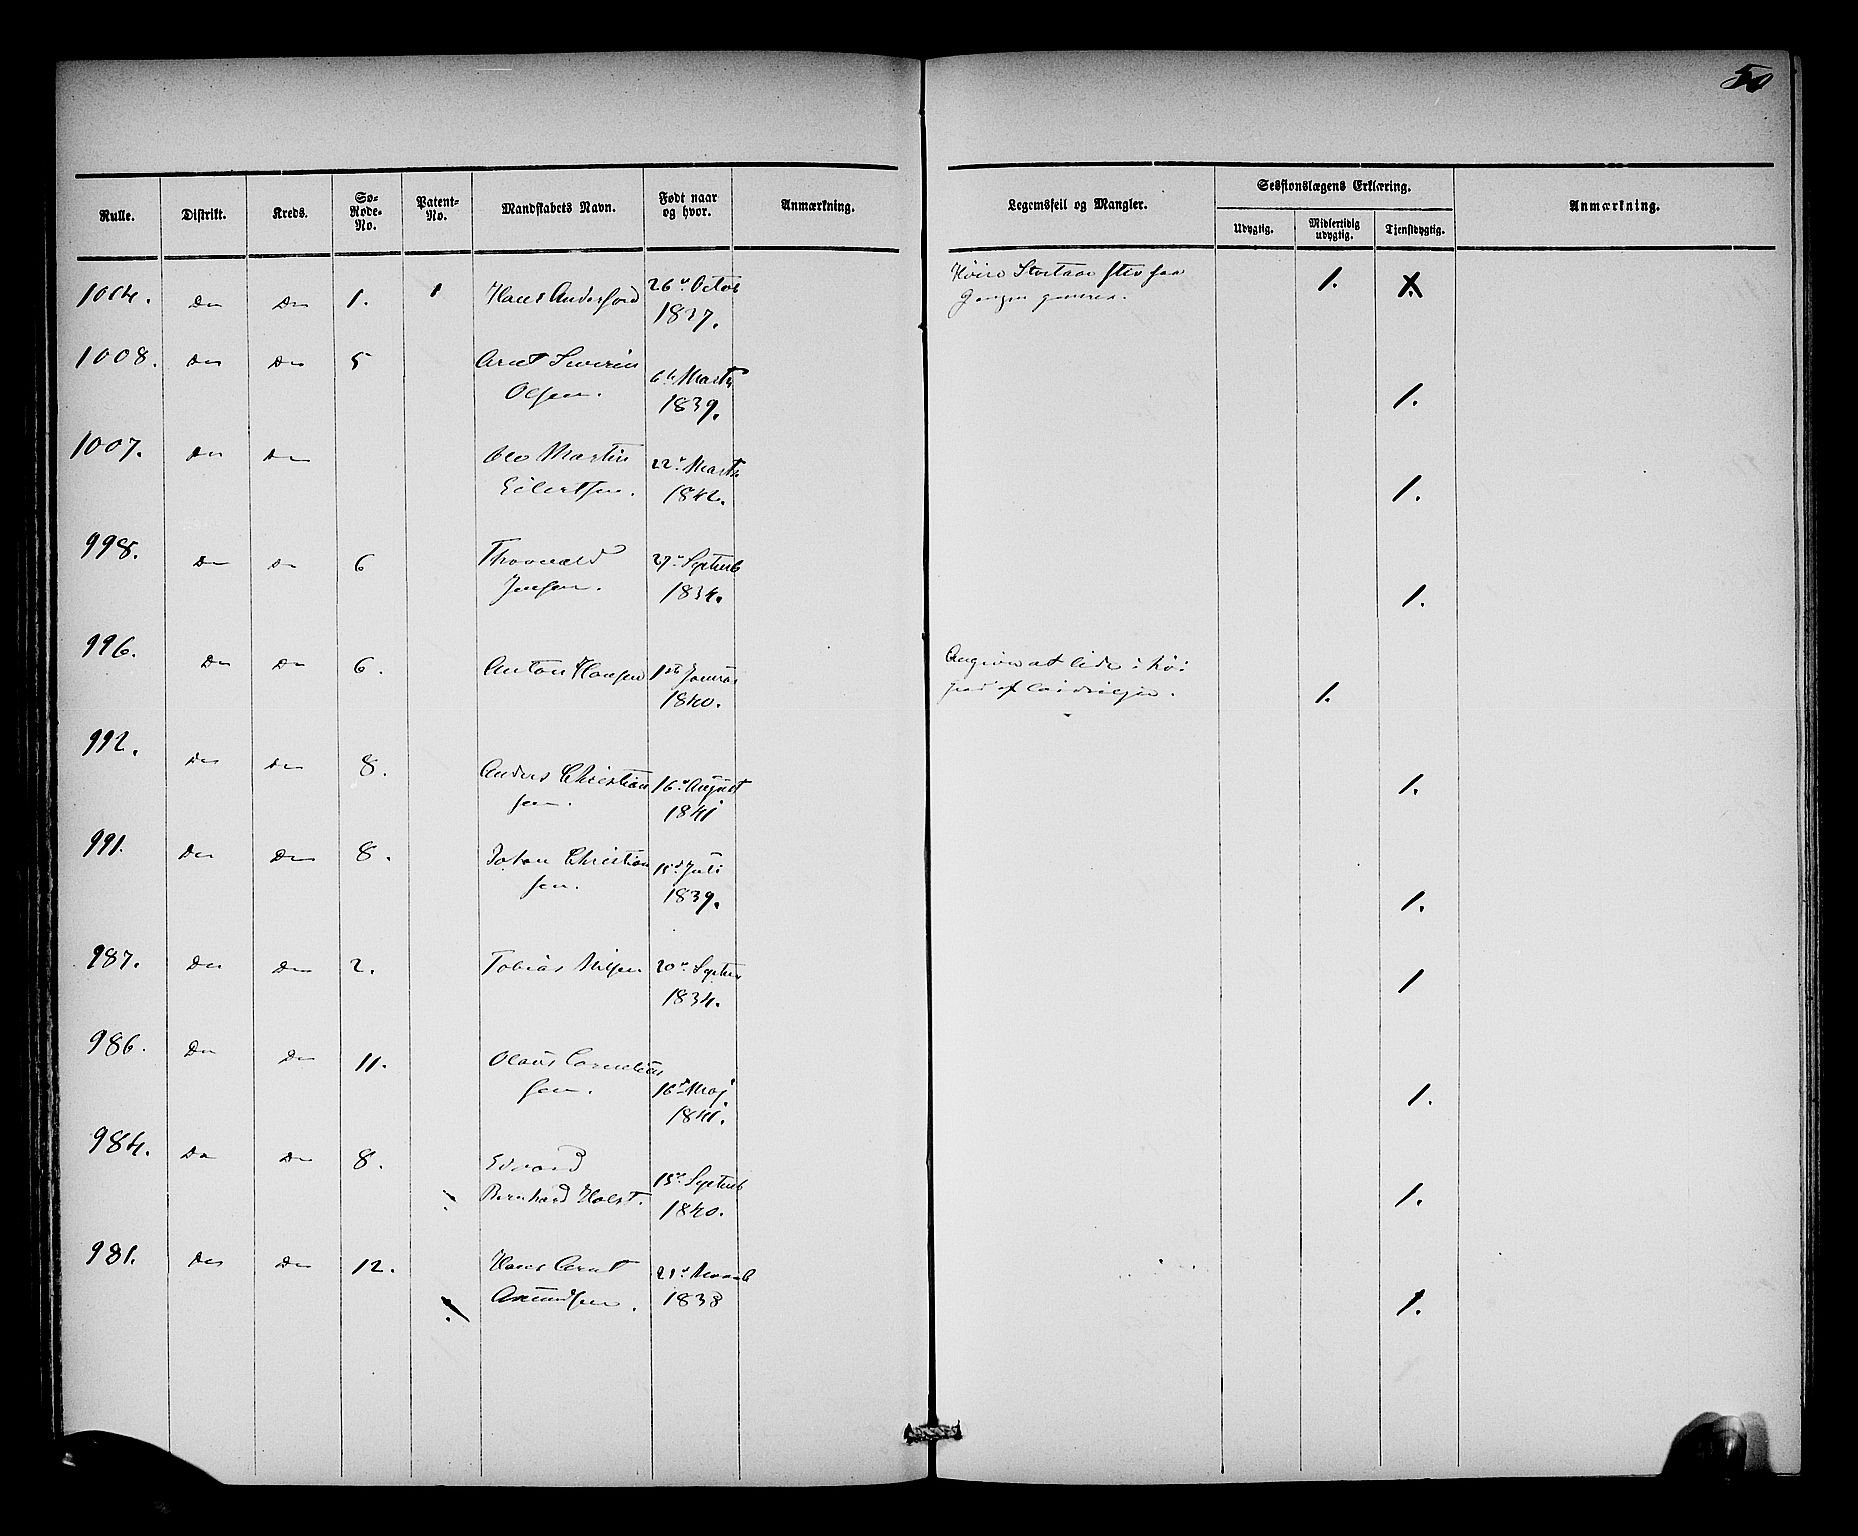 50
Rulle. Distrikt. Kreds. Sø-Rode-No. Patent-No. Mandskabets Navn. Født naar og hvor. Anmærkning. Legemsfeil og Mangler. Sessionslægens Erklæring. Anmærkning.
Udygtig. Midlertidig udygtig. Tjenstdygtig.
1014. Do Do 1. 1 Hans Anderson 26d Octob Høire Stortaa stiv saa 1. 1.
1837. Gangen
1008. Do Do 5 Arnt Severin 6te Marts
Olsen. 1839. 1.
1007. Do Do Ole Martin 22d Marts
Eilertsen. 1842. 1.
998. Do Do 6 Thorvald 27d Septemb
Jensen. 1834. 1.
996. Do Do 6. Anton Hansen 1ste Januar Angiver at lide i høi
1840. grad af 1.
992. Do Do 8. Anders Christian 16d August 1.
sen. 1841
991. Do Do 8. Johan Christian 15d Juli
sen. 1839. 1.
987. Do Do 2. Tobias Nilsen 20d Septem 1
1834.
986. Do Do 11. Olaus Cornelius
sen. 16d Maj. 1841. 1.
984. Do Do 8. Edvard
Bernhard Holst. 15d Septemb 1840. 1.
981. Do Do 12. Hans Arnt 21d Novemb
Amundsen. 1838 1.